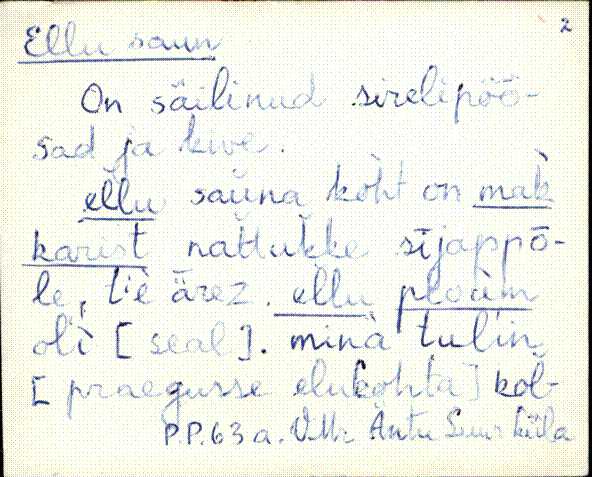 2
Ellu saun
On säilinud sirelipöö-
sad ja kive.
ellu saŭna kòht on màk
karist nattukke sījappō-
le, tiè ārez. ellu ploùm
olì [seal]. minà tulìn
[praegusse elukohta] kòl-
P.P. 63 a. V.Mr. Äntu Suurküla